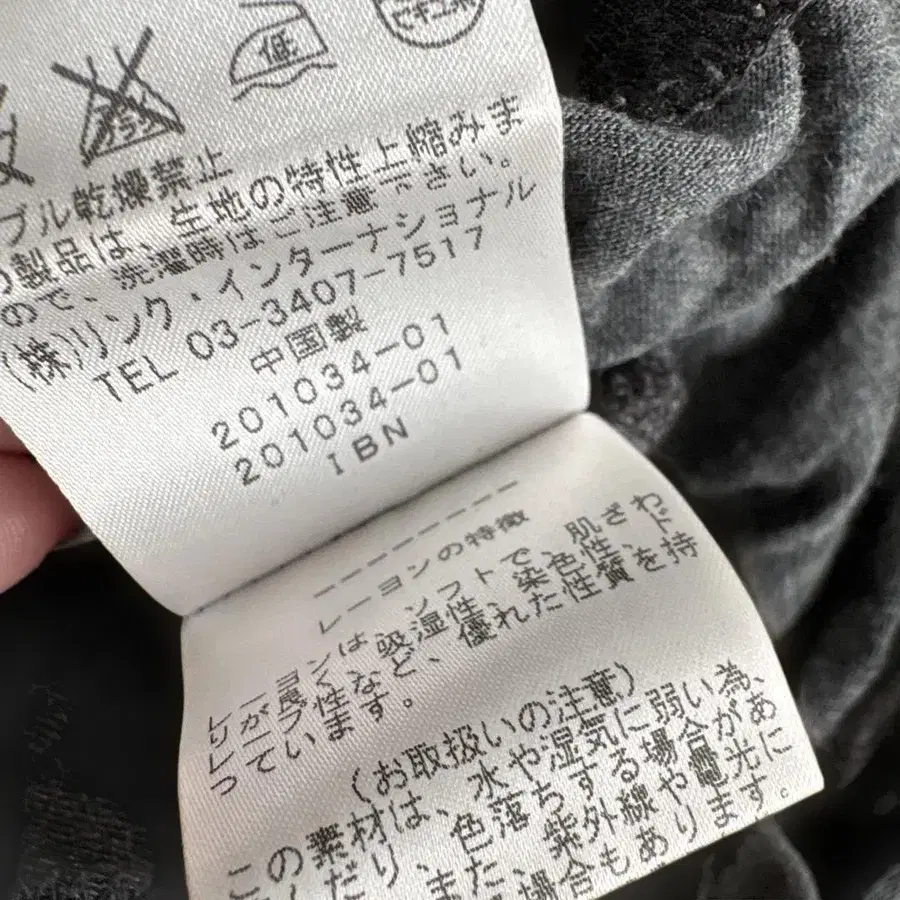 低
ドライ
ブル乾燥禁止
の製品は、生地の特性上縮みま
ので、洗濯時はご注意下さい。
(株)リンク・インターナショナル
TEL 03-3407-7517
中国製
201034-01
201034-01
IBN
----------
レーヨンの特徴
レーヨンは、ソフトで、肌ざわ
りが良く、吸湿性、染色性、ド
レープ性など、優れた性質を持
っています。
(お取扱いの注意)
この素材は、水や湿気に弱い為、
だり、色落ちする場合があ
また、紫外線や蛍光に
場合もあります。